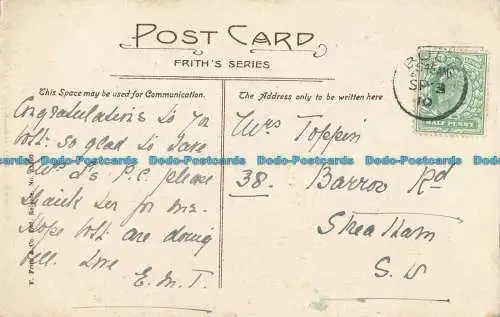 POST CARD
FRITH'S SERIES
This Space may be used for Communication.
The Address only to be written here
SP 3
10
HALF PENNY
Congratulations to you
both: so glad to have
Mrs d's P.C. please
thank her for me.
Hope both are doing
well. Love
E.M.T.
Mrs Toppin
38. Barrow Rd
Streatham
S.W
F. Frith & Co. Ltd. Reigate. No.
Dodo-Postcards Dodo-Postcards Dodo-Postcards Dodo-Postcards Dodo-Postcards